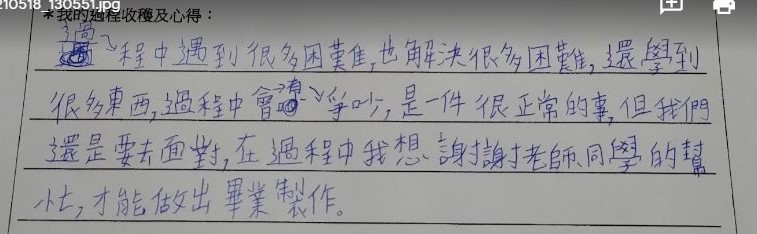 210518_130551.jpg
*我的過程收穫及心得：
過程中遇到很多困難,也解決很多困難,還學到
很多東西,過程中會有爭吵,是一件很正常的事,但我們
還是要去面對,在過程中我想謝謝老師、同學的幫
忙,才能做出畢業製作。